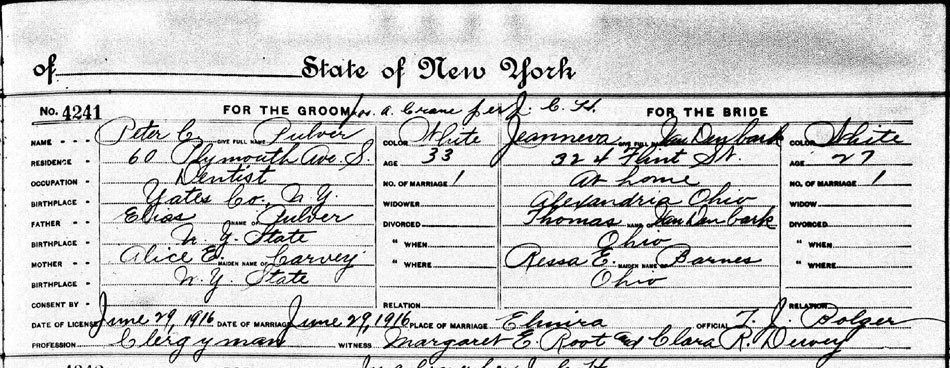 of State of New York
No. 4241 FOR THE GROOM A. Crane per J. C. H. FOR THE BRIDE
NAME " Peter C. GIVE FULL NAME Pulver COLOR White Jeanneva GIVE FULL NAME Van Den bark COLOR White
RESIDENCE " 60 Plymouth Ave. S. AGE 33 324 Flint St. AGE 27
OCCUPATION " Dentist NO. OF MARRIAGE 1 At home NO. OF MARRIAGE 1
BIRTHPLACE " Yates Co., N.Y. WIDOWER Alexandria Ohio WIDOW
FATHER " Elias NAME OF Pulver DIVORCED Thomas NAME OF Van Den bark DIVORCED
BIRTHPLACE " N.Y. State " WHEN Ohio " WHEN
MOTHER " Alice E. MAIDEN NAME OF Carvey " WHERE Ressa E. MAIDEN NAME OF Barnes " WHERE
BIRTHPLACE " N.Y. State Ohio
CONSENT BY " RELATION RELATION
DATE OF LICENSE June 29, 1916 DATE OF MARRIAGE June 29, 1916 PLACE OF MARRIAGE Elmira OFFICIAL T. J. Bolger
PROFESSION Clergyman WITNESS Margaret E. Root and Clara R. Dewey